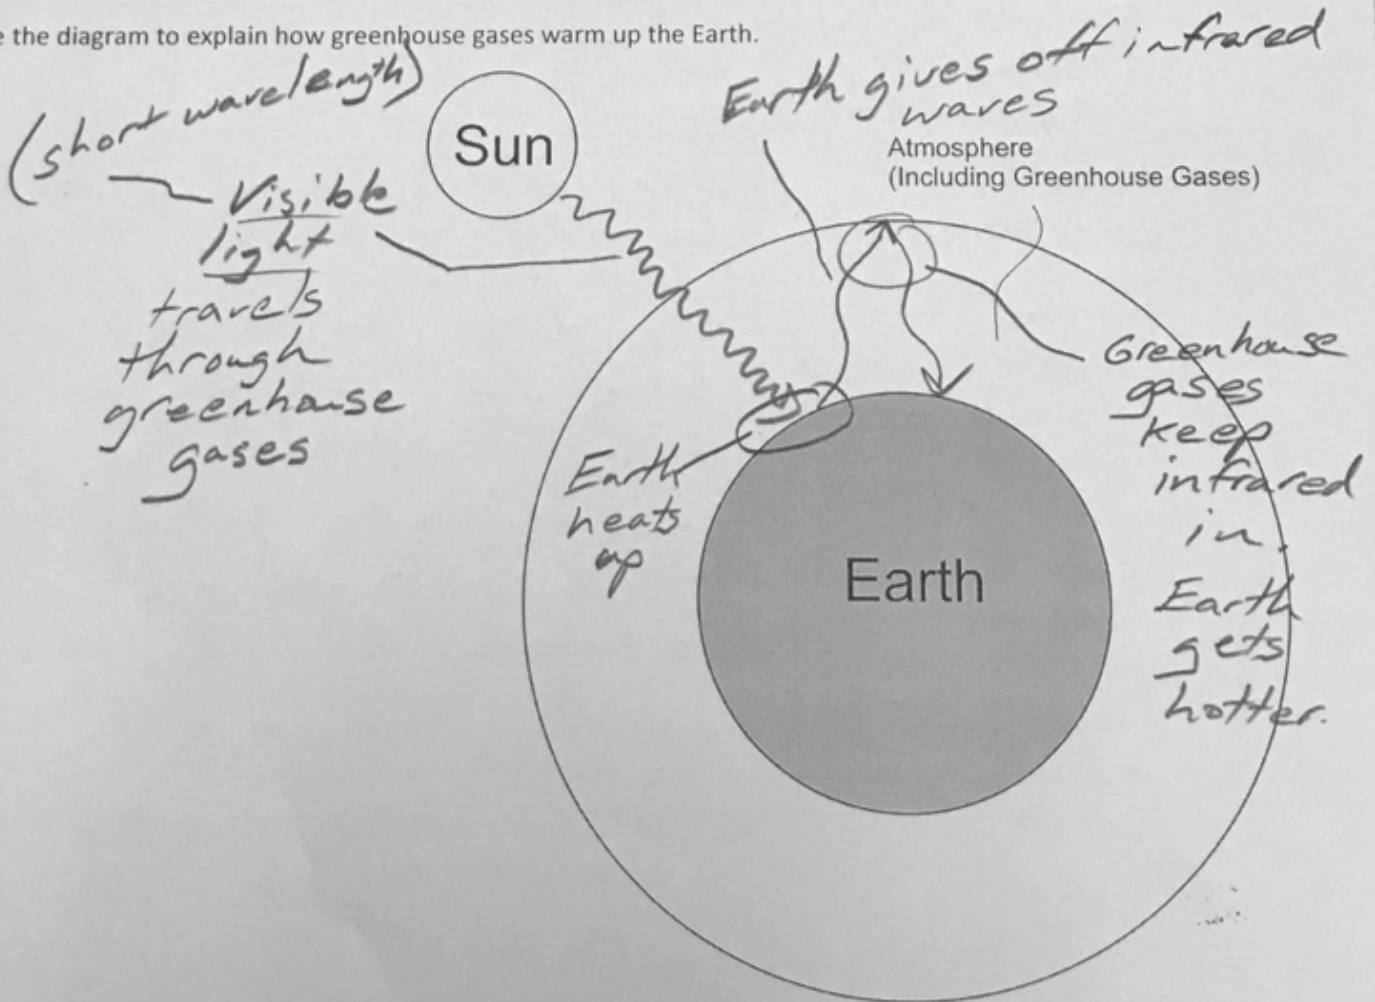 e the diagram to explain how greenhouse gases warm up the Earth.
(short wavelength)
Visible
light
travels
through
greenhouse
gases
Sun
Earth gives off infrared
waves
Atmosphere
(Including Greenhouse Gases)
Greenhouse
gases
keep
infrared
in.
Earth
gets
hotter.
Earth
heats
up
Earth